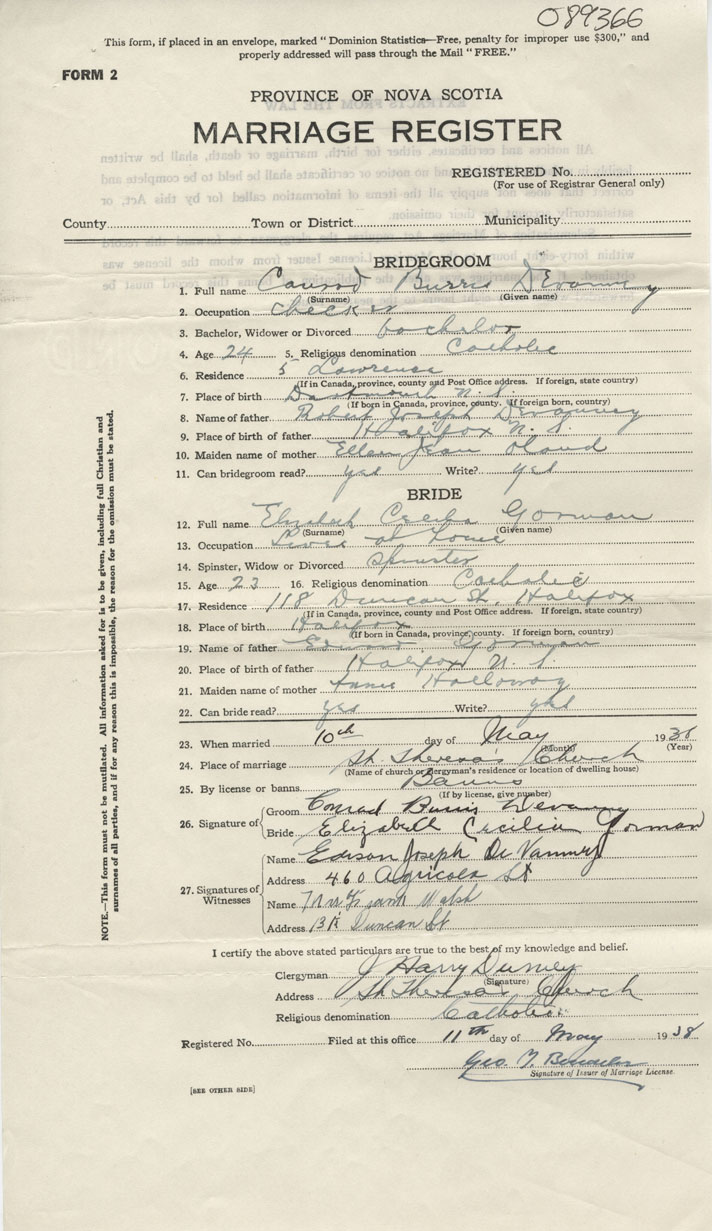 089366
This form, if placed in an envelope, marked "Dominion Statistics—Free, penalty for improper use $300," and
properly addressed will pass through the Mail "FREE."
FORM 2
PROVINCE OF NOVA SCOTIA
MARRIAGE REGISTER
REGISTERED No.
(For use of Registrar General only)
County Town or District Municipality
BRIDEGROOM
1. Full name Conrad Burris Devanney
(Surname) (Given name)
2. Occupation checker
3. Bachelor, Widower or Divorced bachelor
4. Age 24 5. Religious denomination Catholic
6. Residence 5 Lawrence
(If in Canada, province, county and Post Office address. If foreign, state country)
7. Place of birth Dartmouth N. S.
(If born in Canada, province, county. If foreign born, country)
8. Name of father Robert Joseph Devanney
9. Place of birth of father Halifax N. S.
10. Maiden name of mother Ellen Jean Oland
11. Can bridegroom read? yes Write? yes
BRIDE
12. Full name Elizabeth Cecilia Gorman
(Surname) (Given name)
13. Occupation Lives at home
14. Spinster, Widow or Divorced Spinster
15. Age 23 16. Religious denomination Catholic
17. Residence 118 Duncan St. Halifax
(If in Canada, province, county and Post Office address. If foreign, state country)
18. Place of birth Halifax
(If born in Canada, province, county. If foreign born, country)
19. Name of father Gorman
20. Place of birth of father Halifax N. S.
21. Maiden name of mother Annie Holloway
22. Can bride read? yes Write? yes
23. When married 10th day of May 1938
(Month) (Year)
24. Place of marriage St. Theresa's Church
(Name of church or clergyman's residence or location of dwelling house)
25. By license or banns Banns
(If by license, give number)
26. Signature of Groom Conrad Burris Devanney
Bride Elizabeth Cecilia Gorman
27. Signatures of Witnesses
Name Edison Joseph DeVanney
Address 460 Agricola St
Name Mrs Frank Walsh
Address Duncan St
I certify the above stated particulars are true to the best of my knowledge and belief.
Clergyman J Harry Durney
(Signature)
Address St Theresa's Church
Religious denomination Catholic
Registered No. Filed at this office 11th day of May 1938
Geo. T.
Signature of Issuer of Marriage License.
[SEE OTHER SIDE]
NOTE.—This form must not be mutilated. All information asked for is to be given, including full Christian and
surnames of all parties, and if for any reason this is impossible, the reason for the omission must be stated.